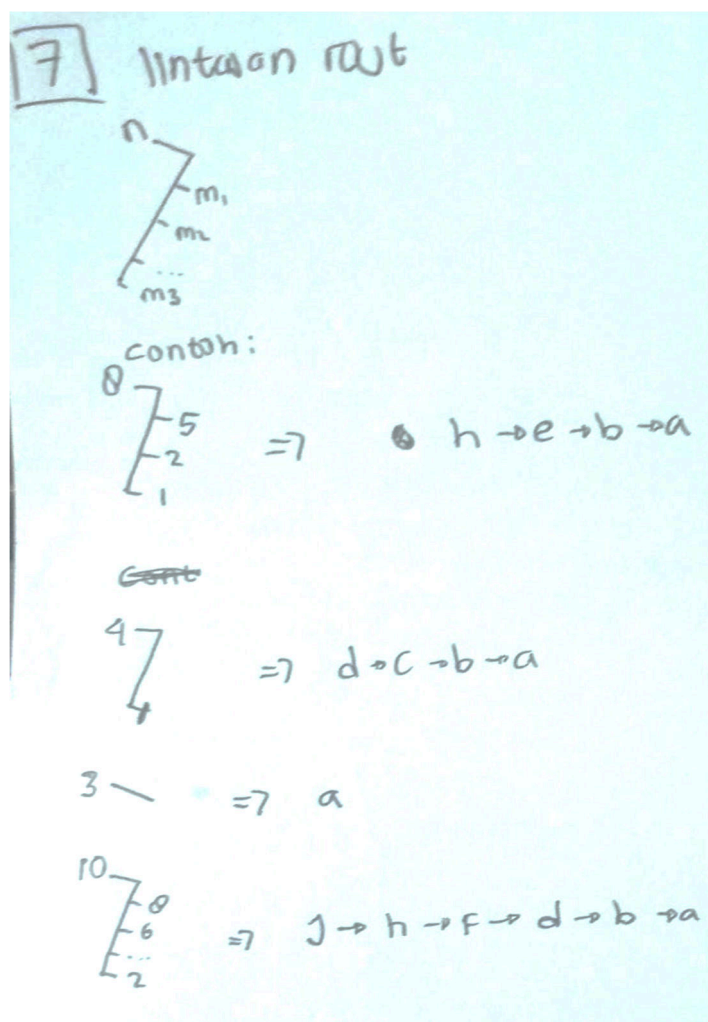 7 lintasan rout
n
m1
m2
...
m3
contoh:
8
5 => h → e → b → a
2
1
4 => d → c → b → a
3 => a
10
8
6 => J → h → f → d → b → a
...
2